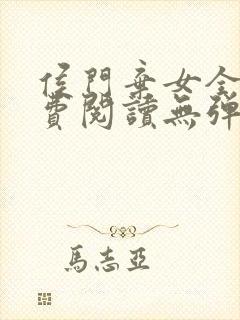 侯門棄女全
費閱讀無彈
馬志亞